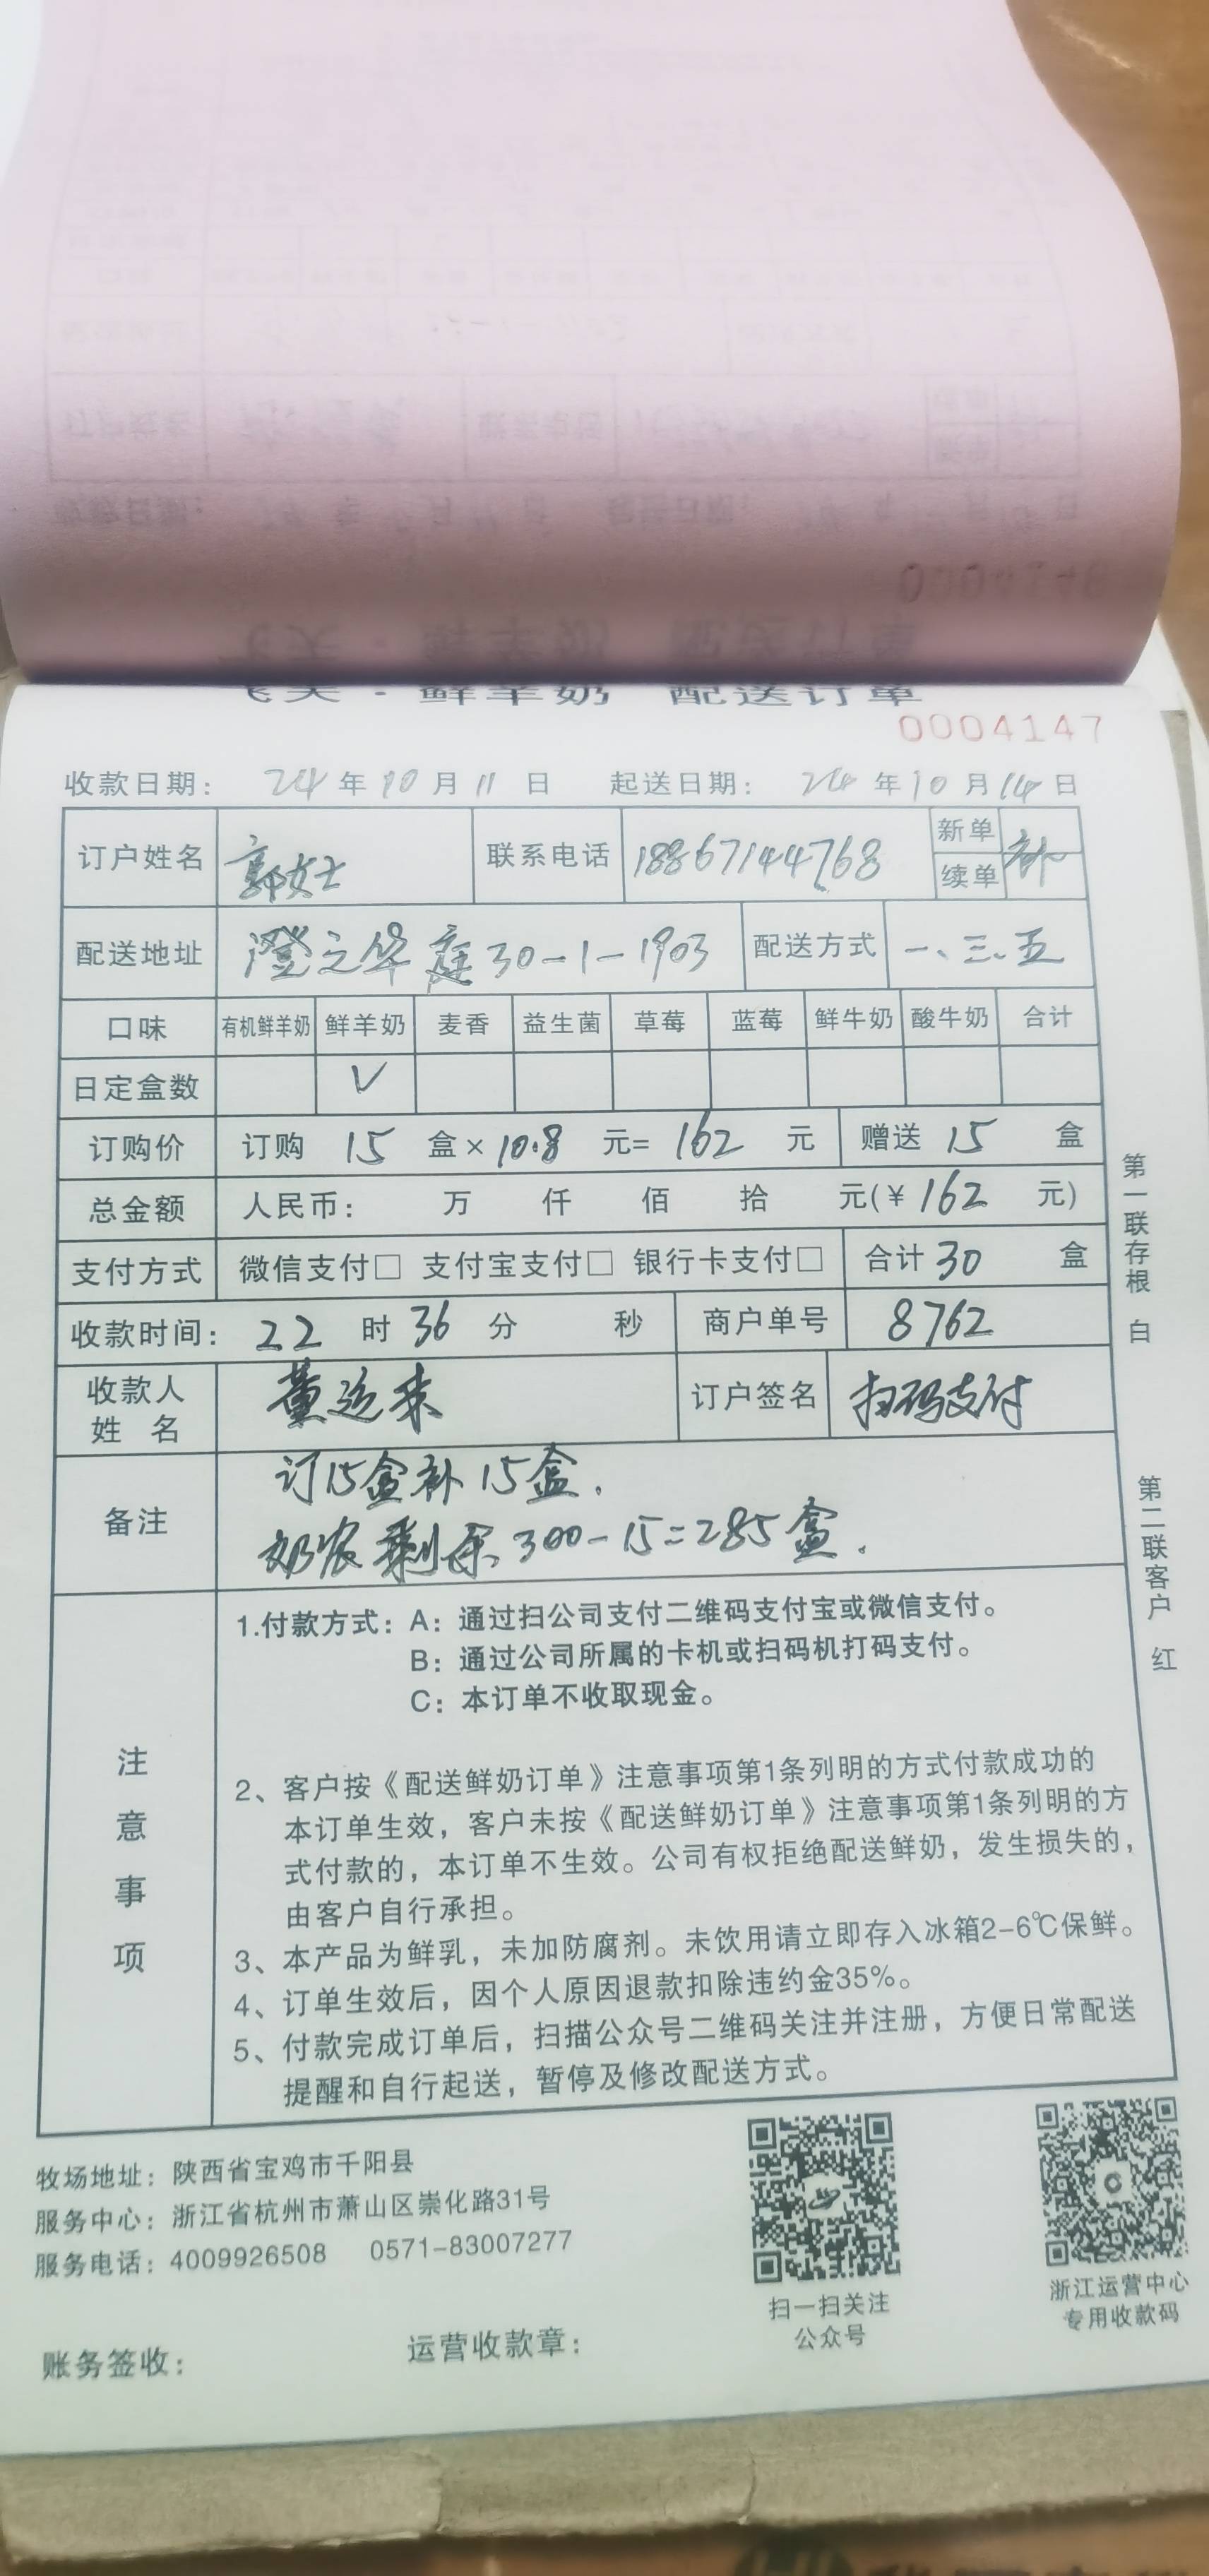 飞天·鲜羊奶 配送订单
0004147
收款日期: 24 年 10 月 11 日 起送日期: 24 年 10 月 14 日
订户姓名 郭女士 联系电话 18867144768 新单 续单 补
配送地址 澄之华庭30-1-1903 配送方式 一、三、五
口味 有机鲜羊奶 鲜羊奶 麦香 益生菌 草莓 蓝莓 鲜牛奶 酸牛奶 合计
日定盒数 √
订购价 订购 15 盒× 10.8 元= 162 元 赠送 15 盒
总金额 人民币: 万 仟 佰 拾 元(¥ 162 元)
支付方式 微信支付□ 支付宝支付□ 银行卡支付□ 合计 30 盒
收款时间: 22 时 36 分 秒 商户单号 8762
收款人姓名 董运来 订户签名 扫码支付
备注 订15盒补15盒.
奶农剩余300-15=285盒.
注意事项
1.付款方式: A: 通过扫公司支付二维码支付宝或微信支付。
B: 通过公司所属的卡机或扫码机打码支付。
C: 本订单不收取现金。
2、客户按《配送鲜奶订单》注意事项第1条列明的方式付款成功的
本订单生效，客户未按《配送鲜奶订单》注意事项第1条列明的方
式付款的，本订单不生效。公司有权拒绝配送鲜奶，发生损失的，
由客户自行承担。
3、本产品为鲜乳，未加防腐剂。未饮用请立即存入冰箱2-6℃保鲜。
4、订单生效后，因个人原因退款扣除违约金35%。
5、付款完成订单后，扫描公众号二维码关注并注册，方便日常配送
提醒和自行起送，暂停及修改配送方式。
第一联存根 白
第二联客户 红
牧场地址: 陕西省宝鸡市千阳县
服务中心: 浙江省杭州市萧山区崇化路31号
服务电话: 4009926508 0571-83007277
扫一扫关注
公众号
浙江运营中心
专用收款码
账务签收: 运营收款章: